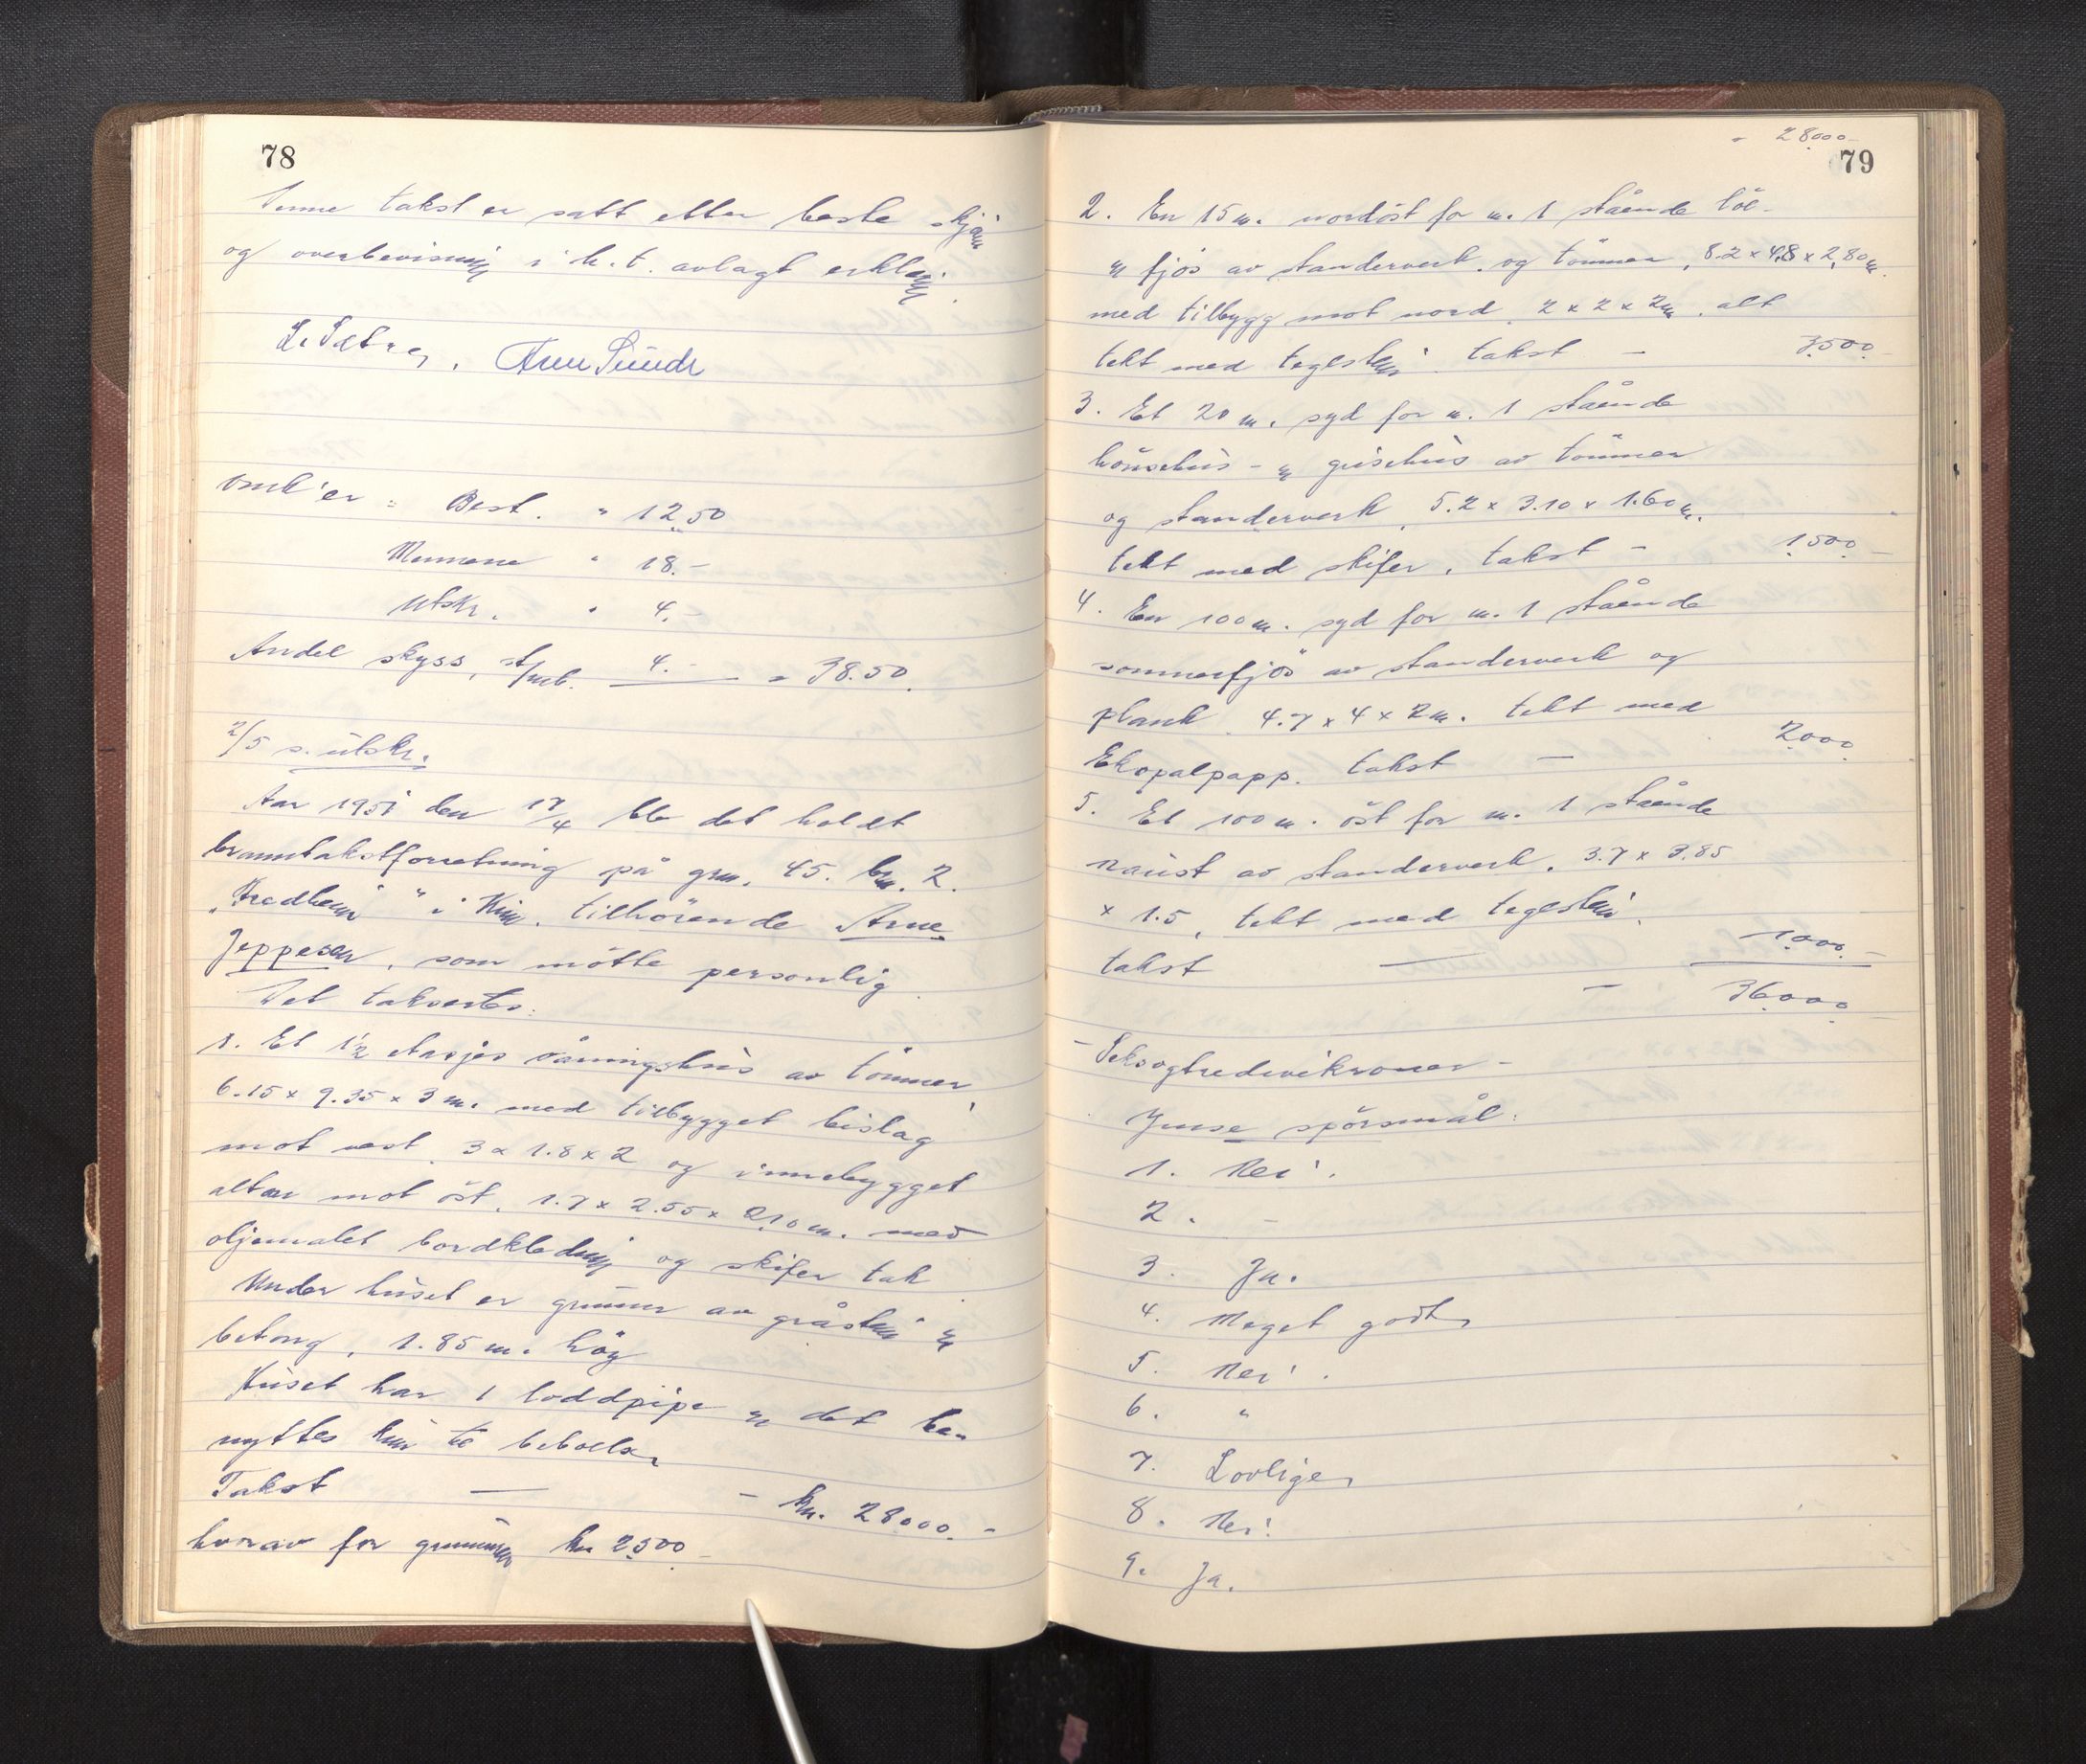 78
Denne takst er satt etter beste skjøn
og overbevisning i h.t. avlagt erklæring.
L. Sætre, Arne Sunde
Omk'er: Best. " 12.50
Mennene " 18.-
Utskr. " 4.-
Andel skyss, st/mb. 4.- = 38.50.
2/5 s. utskr.
Aar 1951 den 17/4 ble det holdt
branntakstforretning på grn. 45. brn. 2.
"Fredheim" i Kinn. tilhörende Arne
Jeppesen, som mötte personlig.
Det takseres:
1. Et 1½ etasjes våningshus av tömmer,
6.15 x 9.35 x 3 m. med tilbygget bislag
mot vest, 3 x 1.8 x 2 og innebygget
altan mot öst, 1.7 x 2.55 x 2.10 m. med
oljemalet bordkledning og skifer tak.
Under huset er grunnmur av gråstein og
betong, 1.85 m. höy
Huset har 1 loddpipe og det be-
nyttes kun til beboelse.
Takst — - kr. 28000.-
hvorav for grunnmuren kr 2500.-
- 28000-
79
2. En 15 m. nordöst for nr. 1 stående löe-
og fjös av standerverk og tömmer, 8.2 x 4,8 x 2,80 m.
med tilbygg mot nord, 2 x 2 x 2 m, alt
tekt med teglstein. takst - 3500.-
3. Et 20 m. syd for nr. 1 stående
hönsehus- og grisehus av tömmer
og standerverk, 5.2 x 3.10 x 1.60 m.
tekt med skifer, takst - 1500.-
4. En 100 m. syd for nr. 1 stående
sommerfjös av standerverk og
plank, 4.7 x 4 x 2 m. tekt med
Ekopalpapp. takst — 2000.
5. Et 100 m. öst for nr. 1 stående
naust av standerverk, 3.7 x 3.85
x 1.5, tekt med teglstein,
takst — 1000.-
- 36000.-
- Seksogtredivekroner -
Jense spörsmål:
1. Nei.
2. -
3. Ja.
4. Meget godt.
5. Nei.
6. "
7. Lovlige.
8. Nei.
9. Ja.